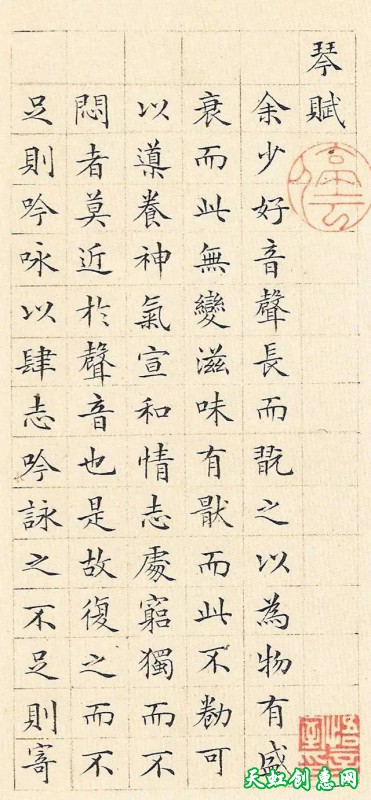 琴賦
余少好音聲長而翫之以為物有盛
衰而此無變滋味有猒而此不勌可
以導養神氣宣和情志處窮獨而不
悶者莫近於聲音也是故復之而不
足則吟咏以肆志吟詠之不足則寄
天虹创意网